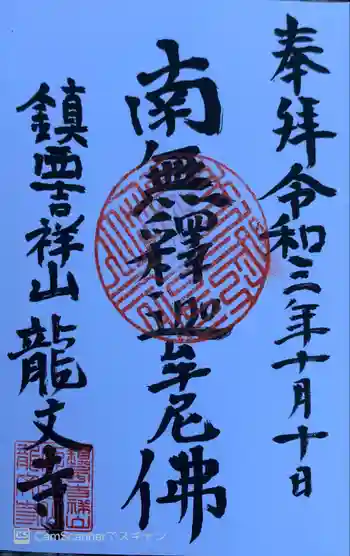 奉拝令和三年十月十日
南無釋迦牟尼佛
鎮西吉祥山龍文寺
CS CamScannerでスキャン